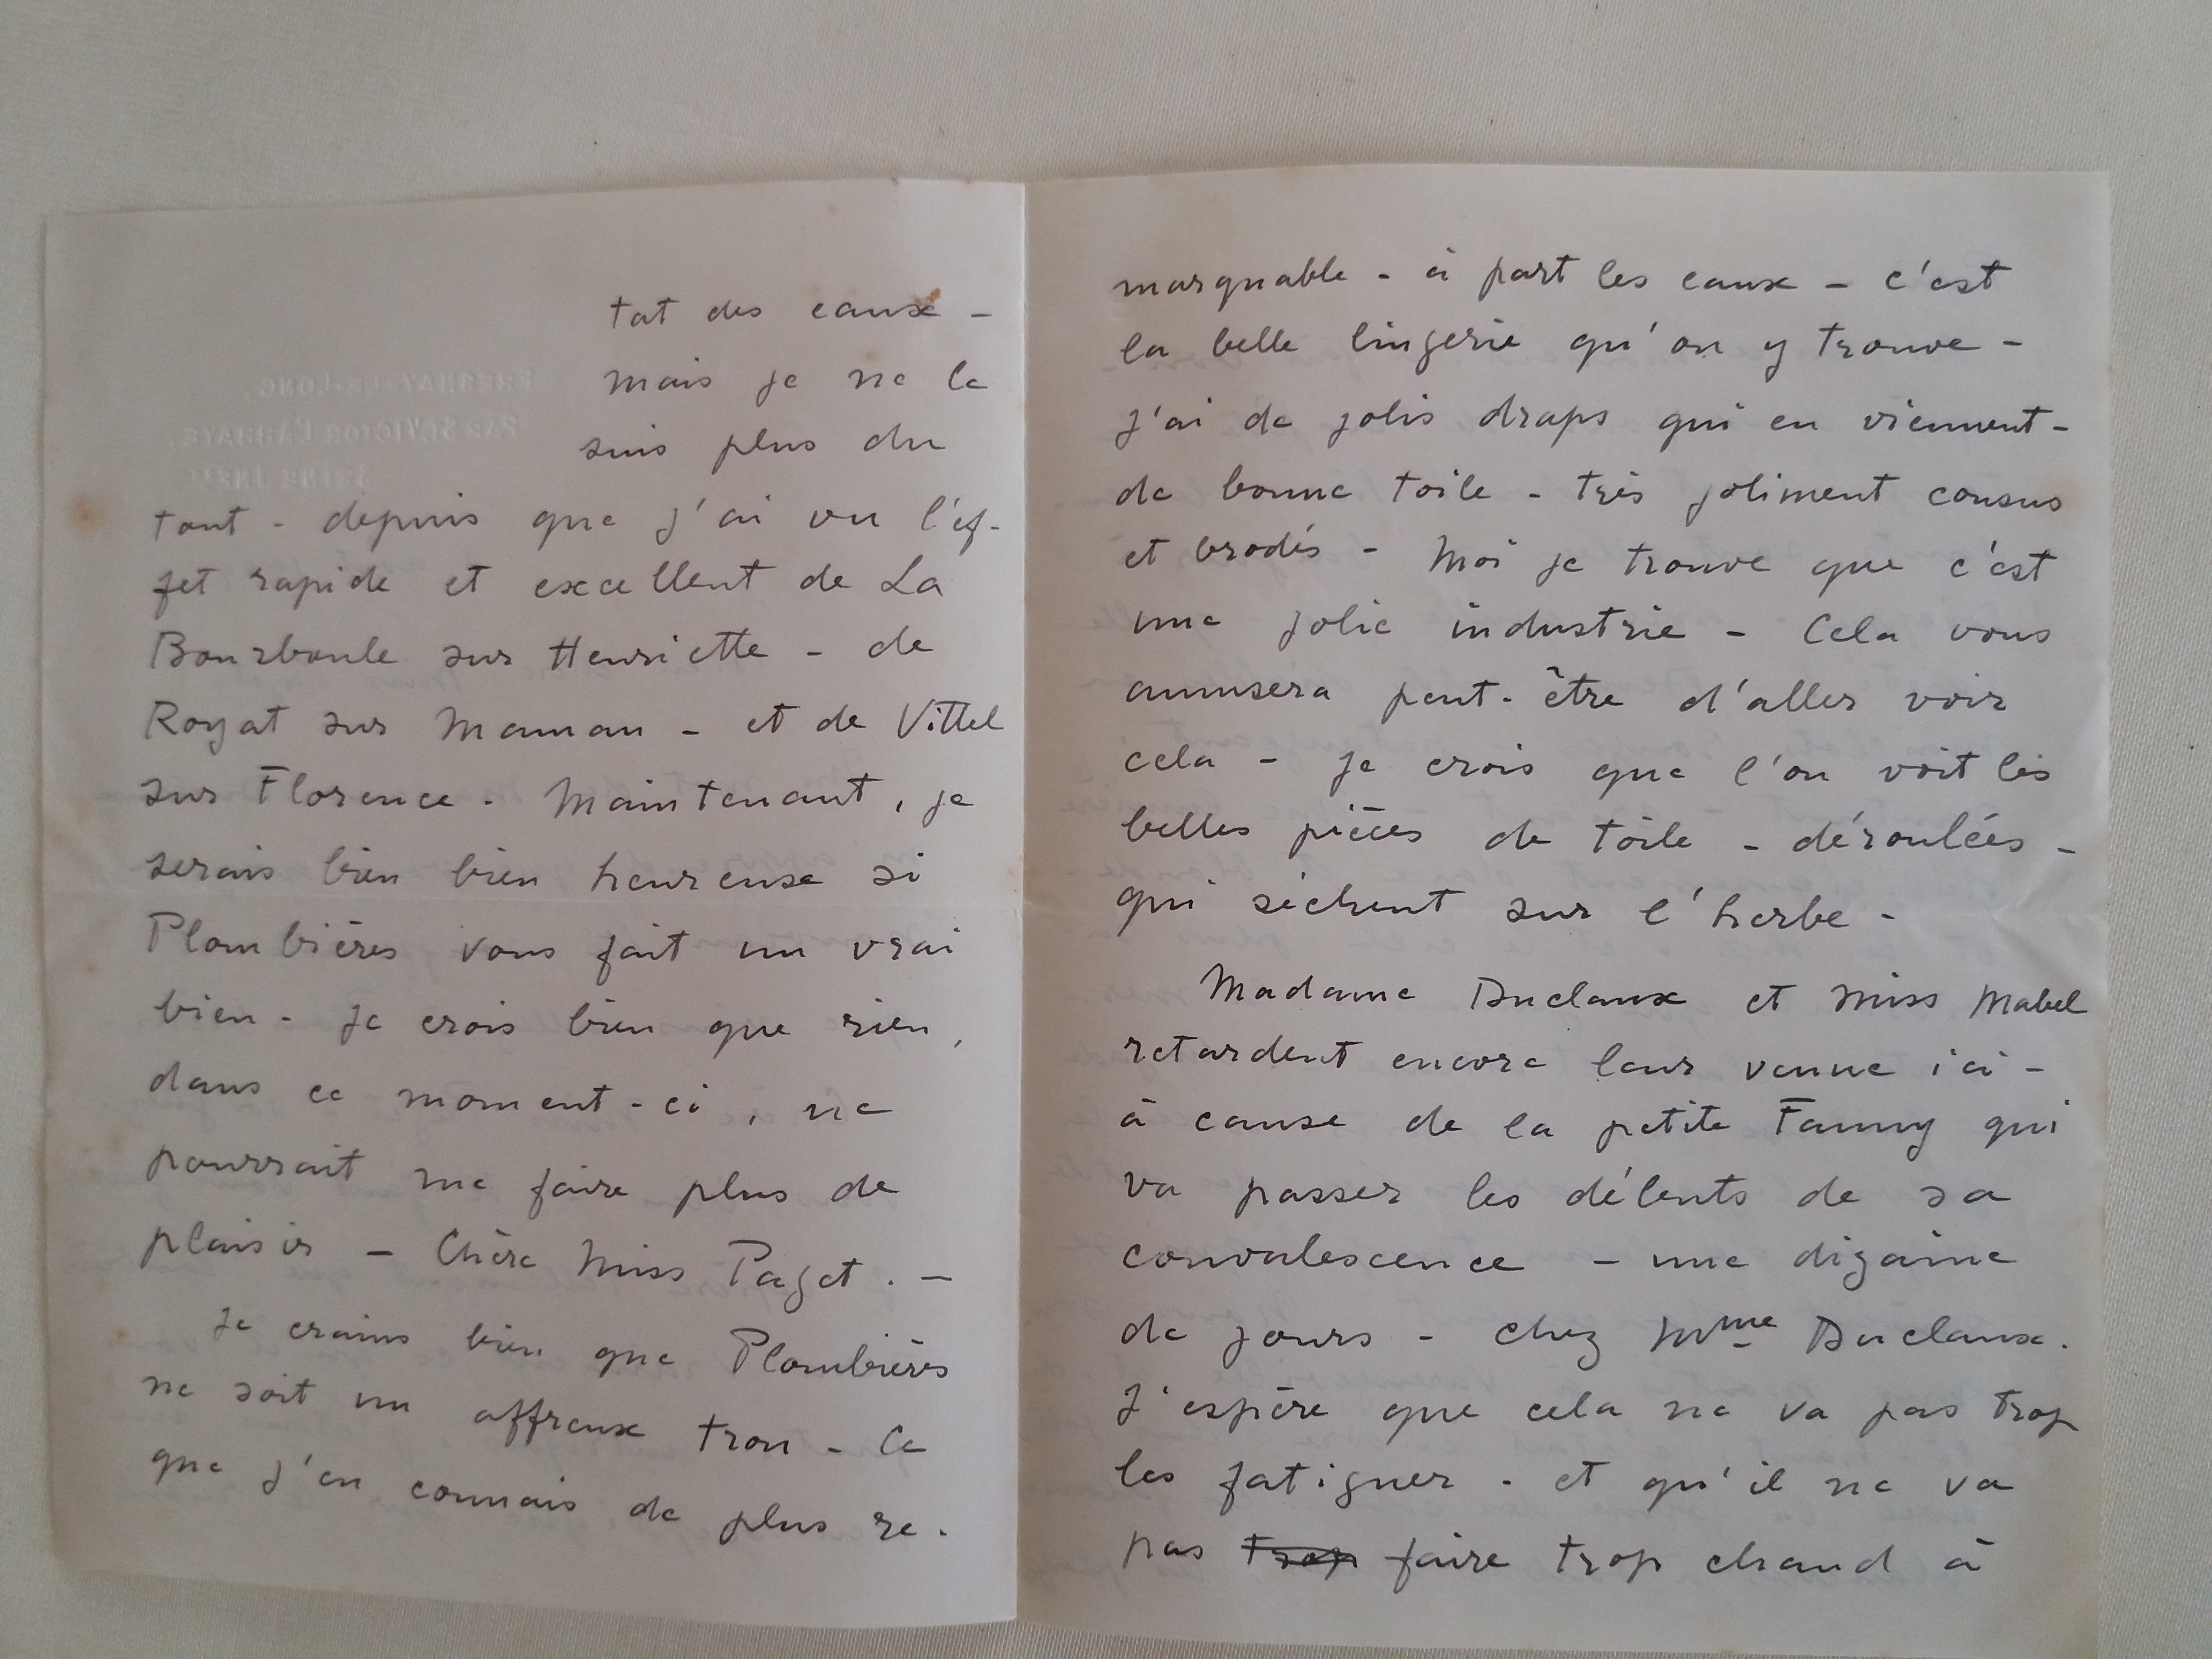 FRESNAY-LE-LONG,
PAR St VICTOR L'ABBAYE
SEINE INFre
tat des eaux -
mais je ne le
suis plus du
tout - depuis que j'ai vu l'ef-
fet rapide et excellent de La
Bourboule sur Henriette - de
Royat sur Maman - et de Vittel
sur Florence - Maintenant, je
serais bien bien heureuse si
Plombières vous fait un vrai
bien - Je crois bien que rien,
dans ce moment-ci, ne
pourrait me faire plus de
plaisir - Chère Miss Paget. -
Je crains bien que Plombières
ne soit un affreux trou - Ce
que j'en connais de plus re-
marquable - à part les eaux - c'est
la belle lingerie qu'on y trouve -
J'ai de jolis draps qui en viennent -
de bonne toile - très joliment cousus
et brodés - Moi je trouve que c'est
une jolie industrie - Cela vous
amusera peut-être d'aller voir
cela - je crois que l'on voit les
belles pièces de toile - déroulées -
qui sèchent sur l'herbe -
Madame Duclaux et Miss Mabel
retardent encore leur venue ici -
à cause de la petite Fanny qui
va passer les débuts de sa
convalescence - une dizaine
de jours - chez Mme Duclaux.
J'espère que cela ne va pas trop
les fatiguer - et qu'il ne va
pas trop faire trop chaud à